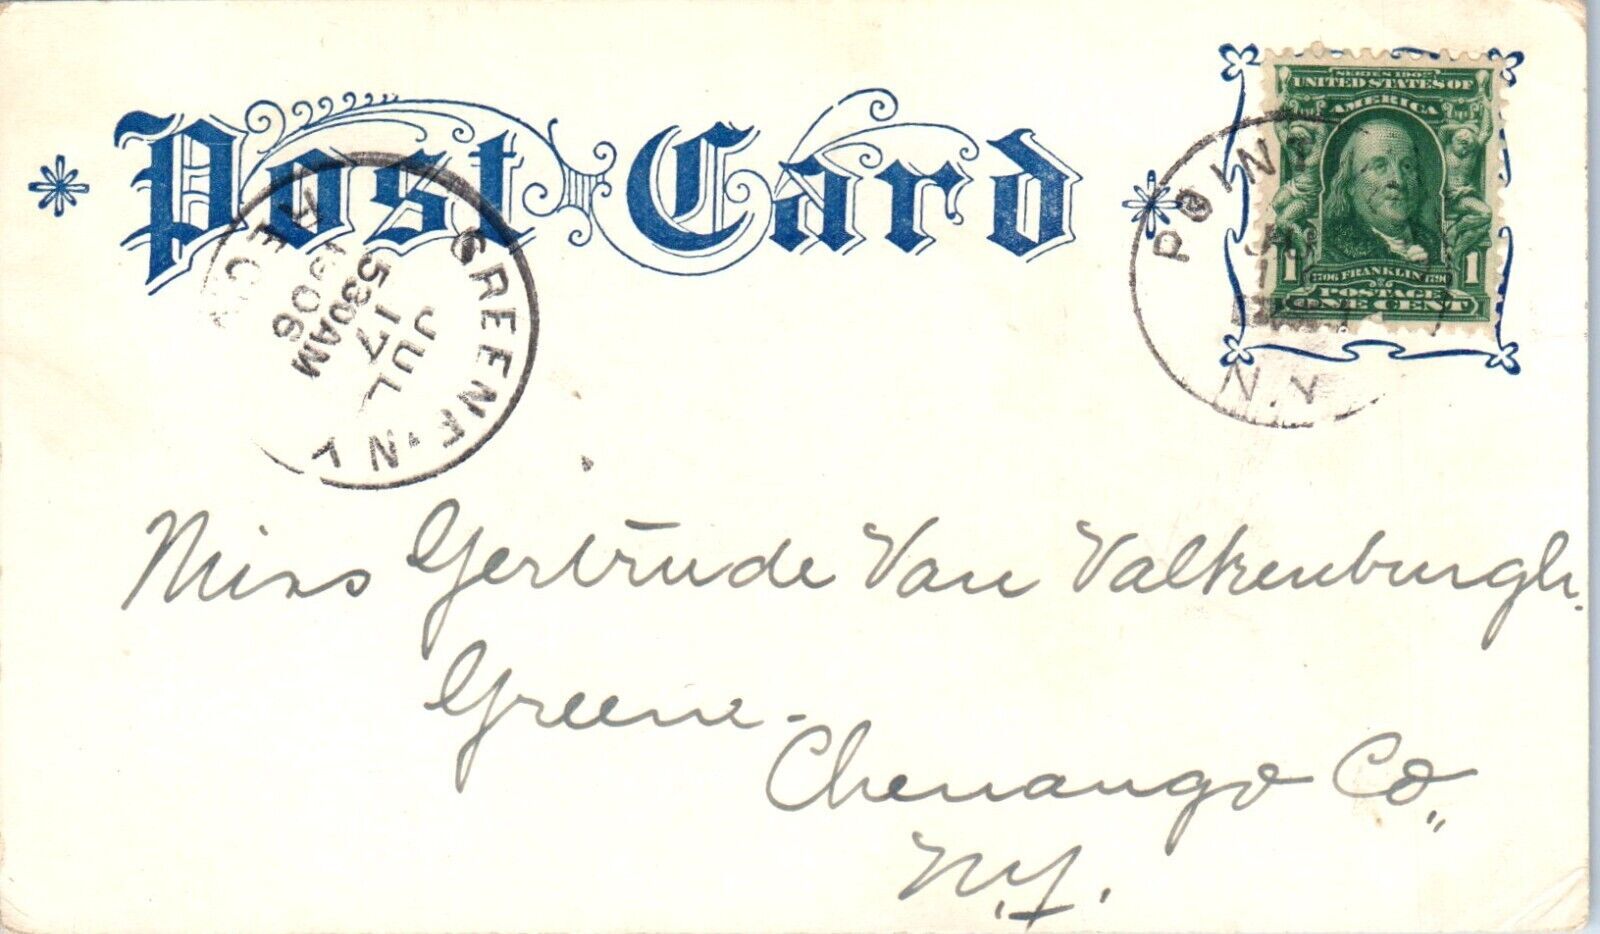 Post Card
GREENE N.Y.
JUL
17
530AM
1906
REC'D
POINT
N.Y.
SERIES 1902
UNITED STATES OF
AMERICA
1 1706 FRANKLIN 1790 1
POSTAGE
ONE CENT
Miss Gertrude Van Valkenburgh.
Greene-
Chenango Co.,
N.Y.